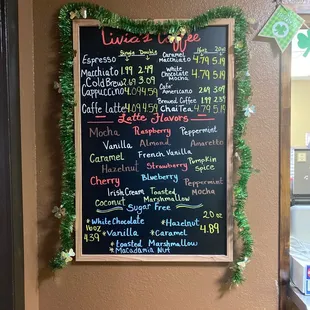 Livia's Coffee
Single Double
Espresso
Macchiato 1.99 2.49
Cold Brew
Cappuccino
Caffe Latte 4.09 4.59
Caramel
Macchiato 4.79 5.19
White
Chocolate
Mocha 4.79 5.19
Cafe'
Americano 2.69
Brewed Coffee 1.99
Chai Tea 4.79 5.19
Latte Flavors
Mocha Raspberry Peppermint
Vanilla Almond Amaretto
Caramel French Vanilla
Hazelnut Strawberry Pumpkin Spice
Cherry Blueberry Peppermint Mocha
Irish Cream Toasted
Coconut Marshmallow
Sugar Free
*White Chocolate *Hazelnut 20z
16oz *Vanilla *Caramel 4.89
4.39 *toasted Marshmallow
*Macadamia Nut